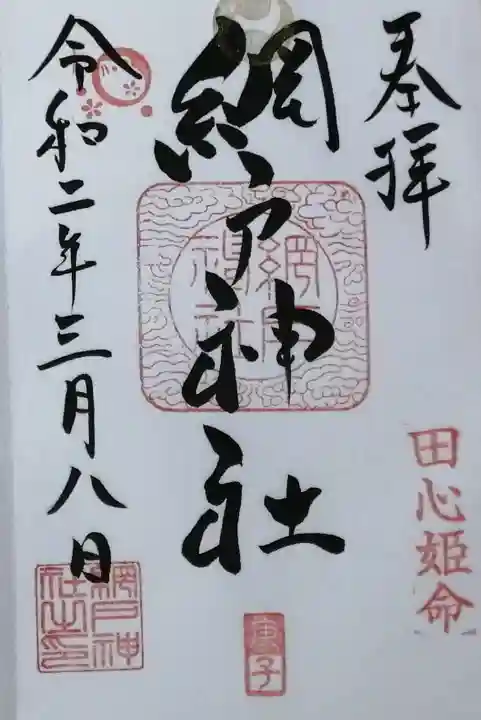 奉拝
田心姫命
網戸神社
網戸神社
庚子
令和二年三月八日
網戸神
社之印